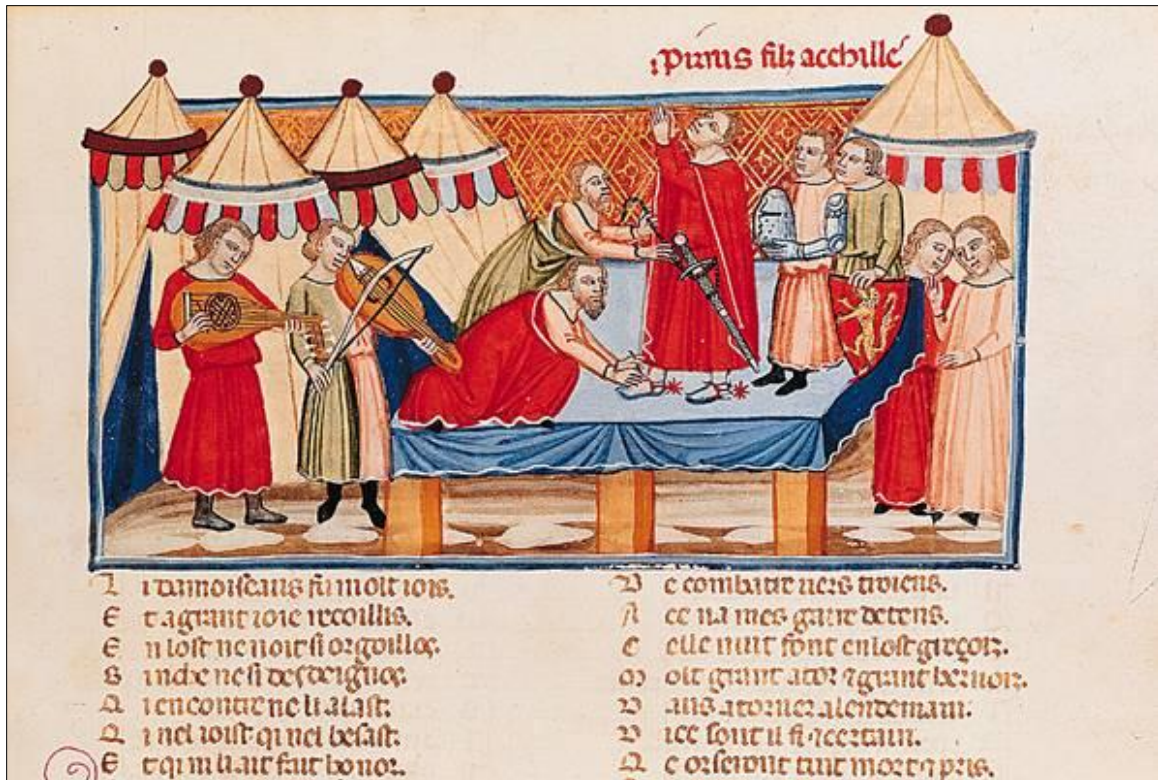 pirrus filz acchillé
L i damoiseaus fu molt iois.
E t a grant ioie recoillis.
E n lost ne noit si orgoillos.
B inche ne si desdeignos.
Q i encontre ne li alast.
Q i nel ioist qui nel besast.
E t qi mliait fait honor.
D e combatre uers troiens.
A ce na mes grant detens.
C elle nuit font en lost greçois.
M olt grant ator grant bernois.
P atorner alendemain.
D ice sont il fi certain.
Q e or seront tuit mort pris.